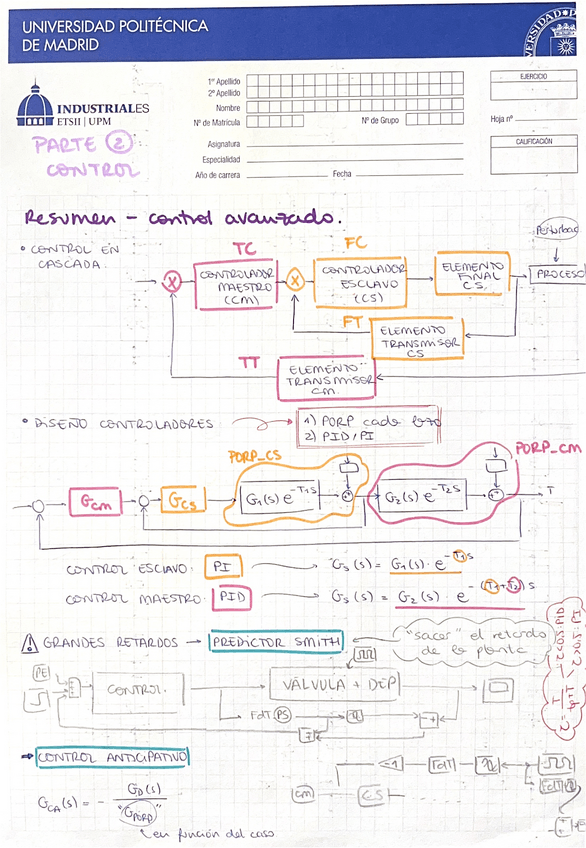 UNIVERSIDAD POLITÉCNICA
DE MADRID
INDUSTRIALES
ETSII | UPM
1er Apellido
2º Apellido
Nombre
Nº de Matrícula
Nº de Grupo
Asignatura
Especialidad
Año de carrera
Fecha
EJERCICIO
Hoja nº
CALIFICACIÓN
PARTE 2
CONTROL
Resumen - control avanzado.
• CONTROL EN
CASCADA
TC
FC
X
CONTROLADOR
MAESTRO
(CM)
X
CONTROLADOR
ESCLAVO
(CS)
ELEMENTO
FINAL
CS.
PROCESO
FT
ELEMENTO
TRANSMISOR
CS
TT
ELEMENTO
TRANSMISOR
CM.
• DISEÑO CONTROLADORES
1) PORP cada lazo
2) PID/PI
PORP_CS
PORP_CM
Gcm
Gcs
G1(s) e^-T1s
G2(s) e^-T2s
T
CONTROL ESCLAVO: PI
Gs(s) = G1(s) · e^-T1s
CONTROL MAESTRO: PID
Gs(s) = G2(s) · e^-(T1+T2)s
⚠ GRANDES RETARDOS → PREDICTOR SMITH
"sacar" el retardo
de la planta
PE
CONTROL.
VÁLVULA + DEP
FdT PS
→ CONTROL ANTICIPATIVO
GCA(s) = - GD(s) / "GPORP"
en función del caso
-1
FdT
CM
CS